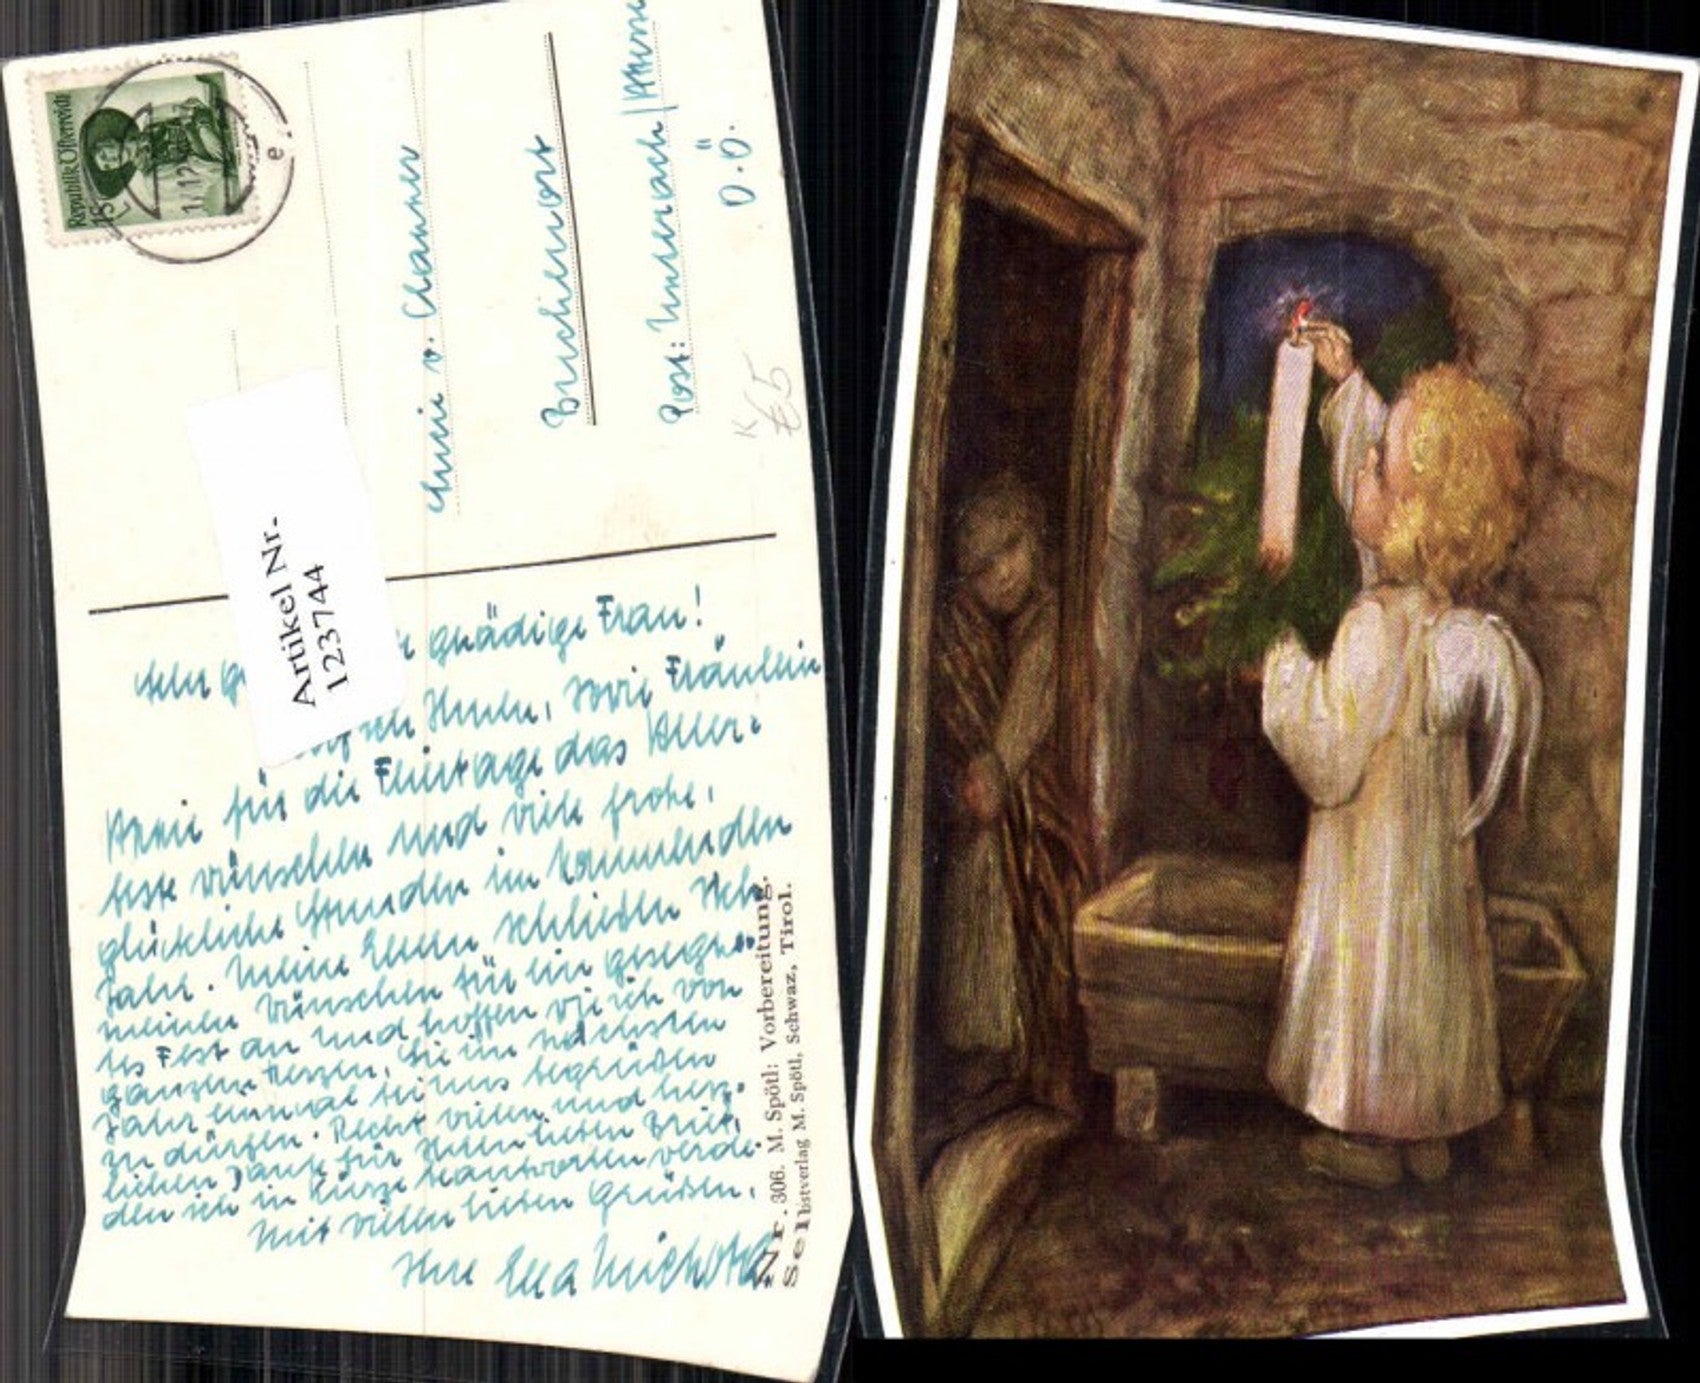 Republik Österreich
1S
1/12
e.
v. Chamner
Buchenort
Post: Unterach
O.Ö.
K €5
Artikel Nr.
123744
gnädige Frau!
Ihnen, sowie Fräulein
Anni für die Feiertage das Aller-
beste wünschen und viele frohe,
glückliche Stunden im kommenden
Jahr. Meine Eltern schließen sich
meinen Wünschen für ein gesegne-
tes Fest an und hoffen wie ich von
ganzem Herzen, Sie im nächsten
Jahr einmal bei uns begrüßen
zu dürfen. Recht vielen und herz-
lichen Dank für Ihren lieben Brief,
den ich in Kürze beantworten werde.
Mit vielen lieben Grüßen,
Ihre
Nr. 306. M. Spötl: Vorbereitung.
Selbstverlag M. Spötl, Schwaz, Tirol.